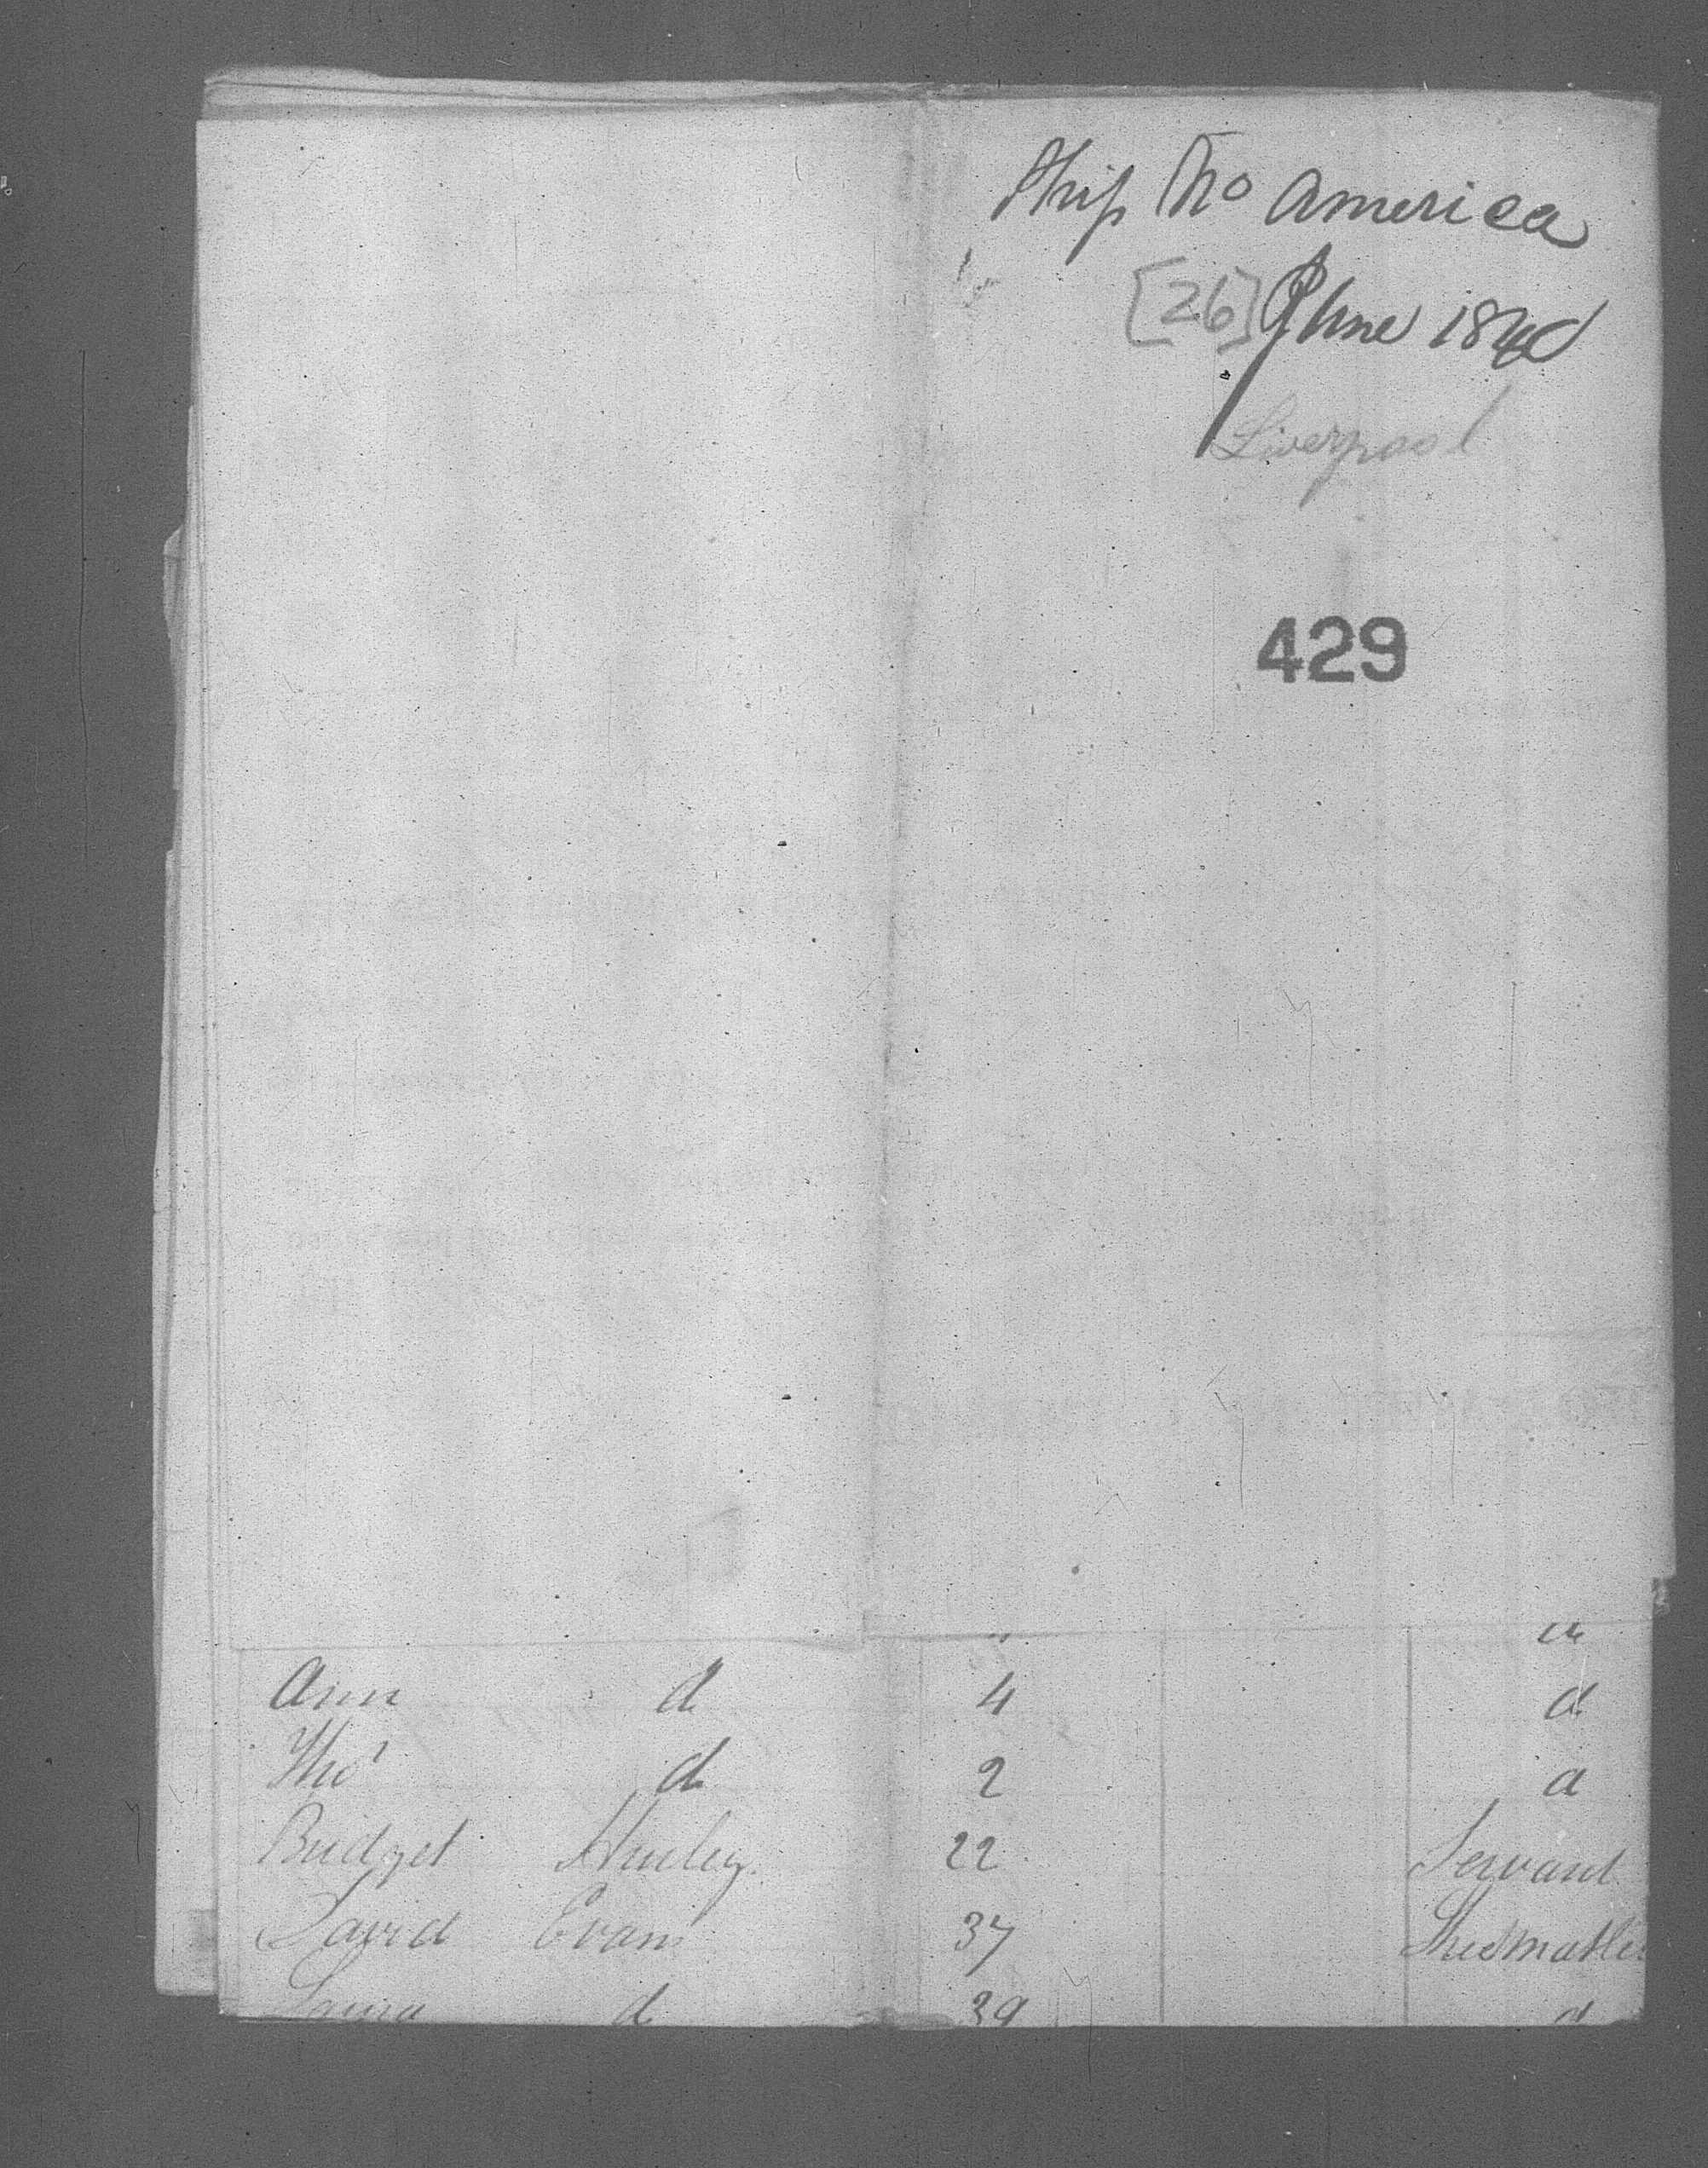 Ship No America
[26] June 1840
Liverpool
429
Ann d 4 d
Tho' d 2 d
Bridget Hurley 22 Servant
David Evans 37
Laura d 39 d